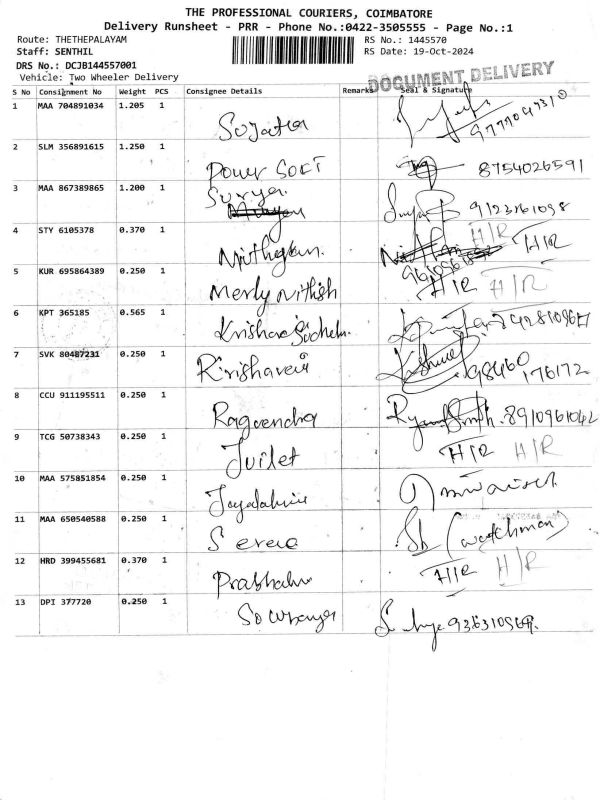 THE PROFESSIONAL COURIERS, COIMBATORE
Delivery Runsheet - PRR - Phone No.:0422-3505555 - Page No.:1
Route: THETHEPALAYAM
RS No.: 1445570
Staff: SENTHIL
RS Date: 19-Oct-2024
DRS No.: DCJB144557001
Vehicle: Two Wheeler Delivery
DOCUMENT DELIVERY
S No Consignment No Weight PCS Consignee Details Remarks Seal & Signature
1 MAA 704891034 1.205 1 Sujatha
2 SLM 356891615 1.250 1 Power Soft 8754026591
3 MAA 867389865 1.200 1 Surya
4 STY 6105378 0.370 1 Nithyan H/R H/R
5 KUR 695864389 0.250 1 Merly Nithish H/R H/R
6 KPT 365185 0.565 1 Krishna
7 SVK 80487231 0.250 1 98460
176172
8 CCU 911195511 0.250 1 Ragvendra 8910961042
9 TCG 50738343 0.250 1 Juilet H/R H/R
10 MAA 575851854 0.250 1
11 MAA 650540588 0.250 1 (watchman)
12 HRD 399455681 0.370 1 Prabhahu H/R H/R
13 DPI 377720 0.250 1 Sowbanya